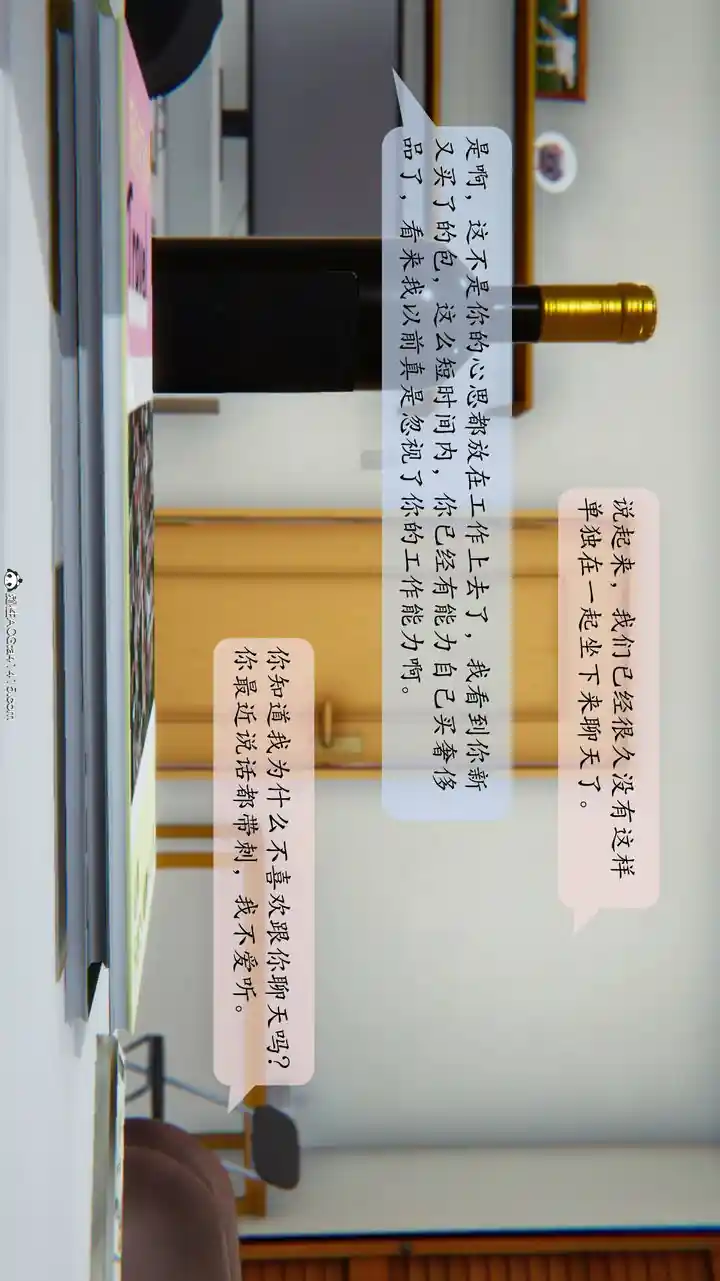 说起来，我们已经很久没有这样
单独在一起坐下来聊天了。
是啊，这不是你的心思都放在工作上去了，我看到你新
又买了的包，这么短时间内，你已经有能力自己买奢侈
品了，看来我以前真是忽视了你的工作能力啊。
你知道我为什么不喜欢跟你聊天吗？
你最近说话都带刺，我不爱听。
Travel